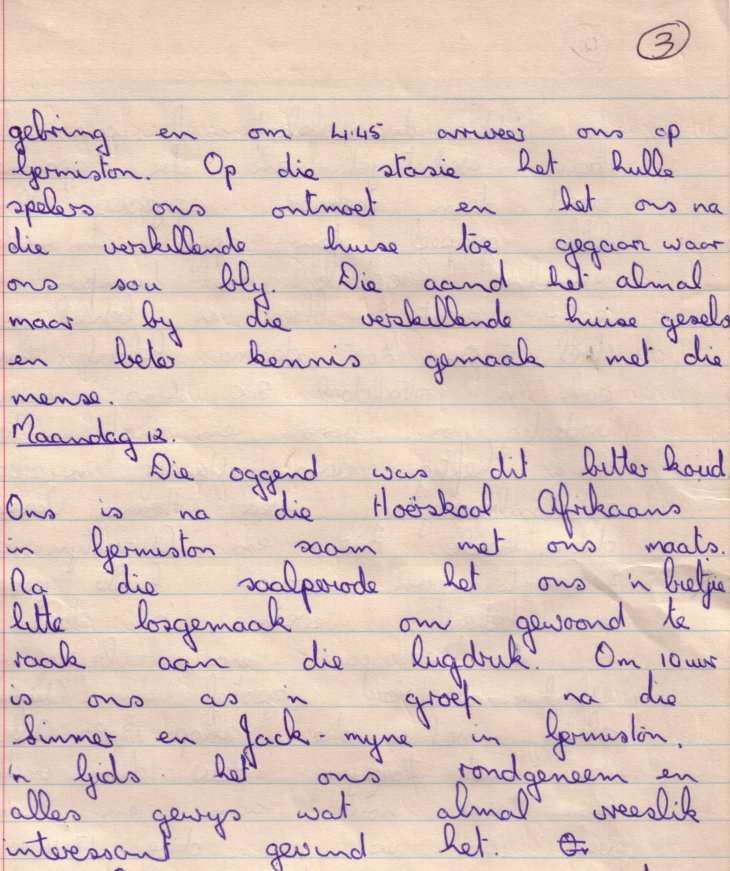 3
gebring en om 4.45 arriveer ons op
Germiston. Op die stasie het hulle
spelers ons ontmoet en het ons na
die verskillende huise toe gegaan waar
ons sou bly. Die aand het almal
maar by die verskillende huise gesels
en beter kennis gemaak met die
mense.
Maandag 12.
Die oggend was dit bitter koud.
Ons is na die Hoërskool Afrikaans
in Germiston saam met ons maats.
Na die saalperode het ons 'n bietjie
litte losgemaak om gewoond te
raak aan die lugdruk. Om 10 uur
is ons as 'n groep na die
Simmer en Jack-myne in Germiston.
'n Gids het ons rondgeneem en
alles gewys wat almal vreeslik
interessant gevind het.